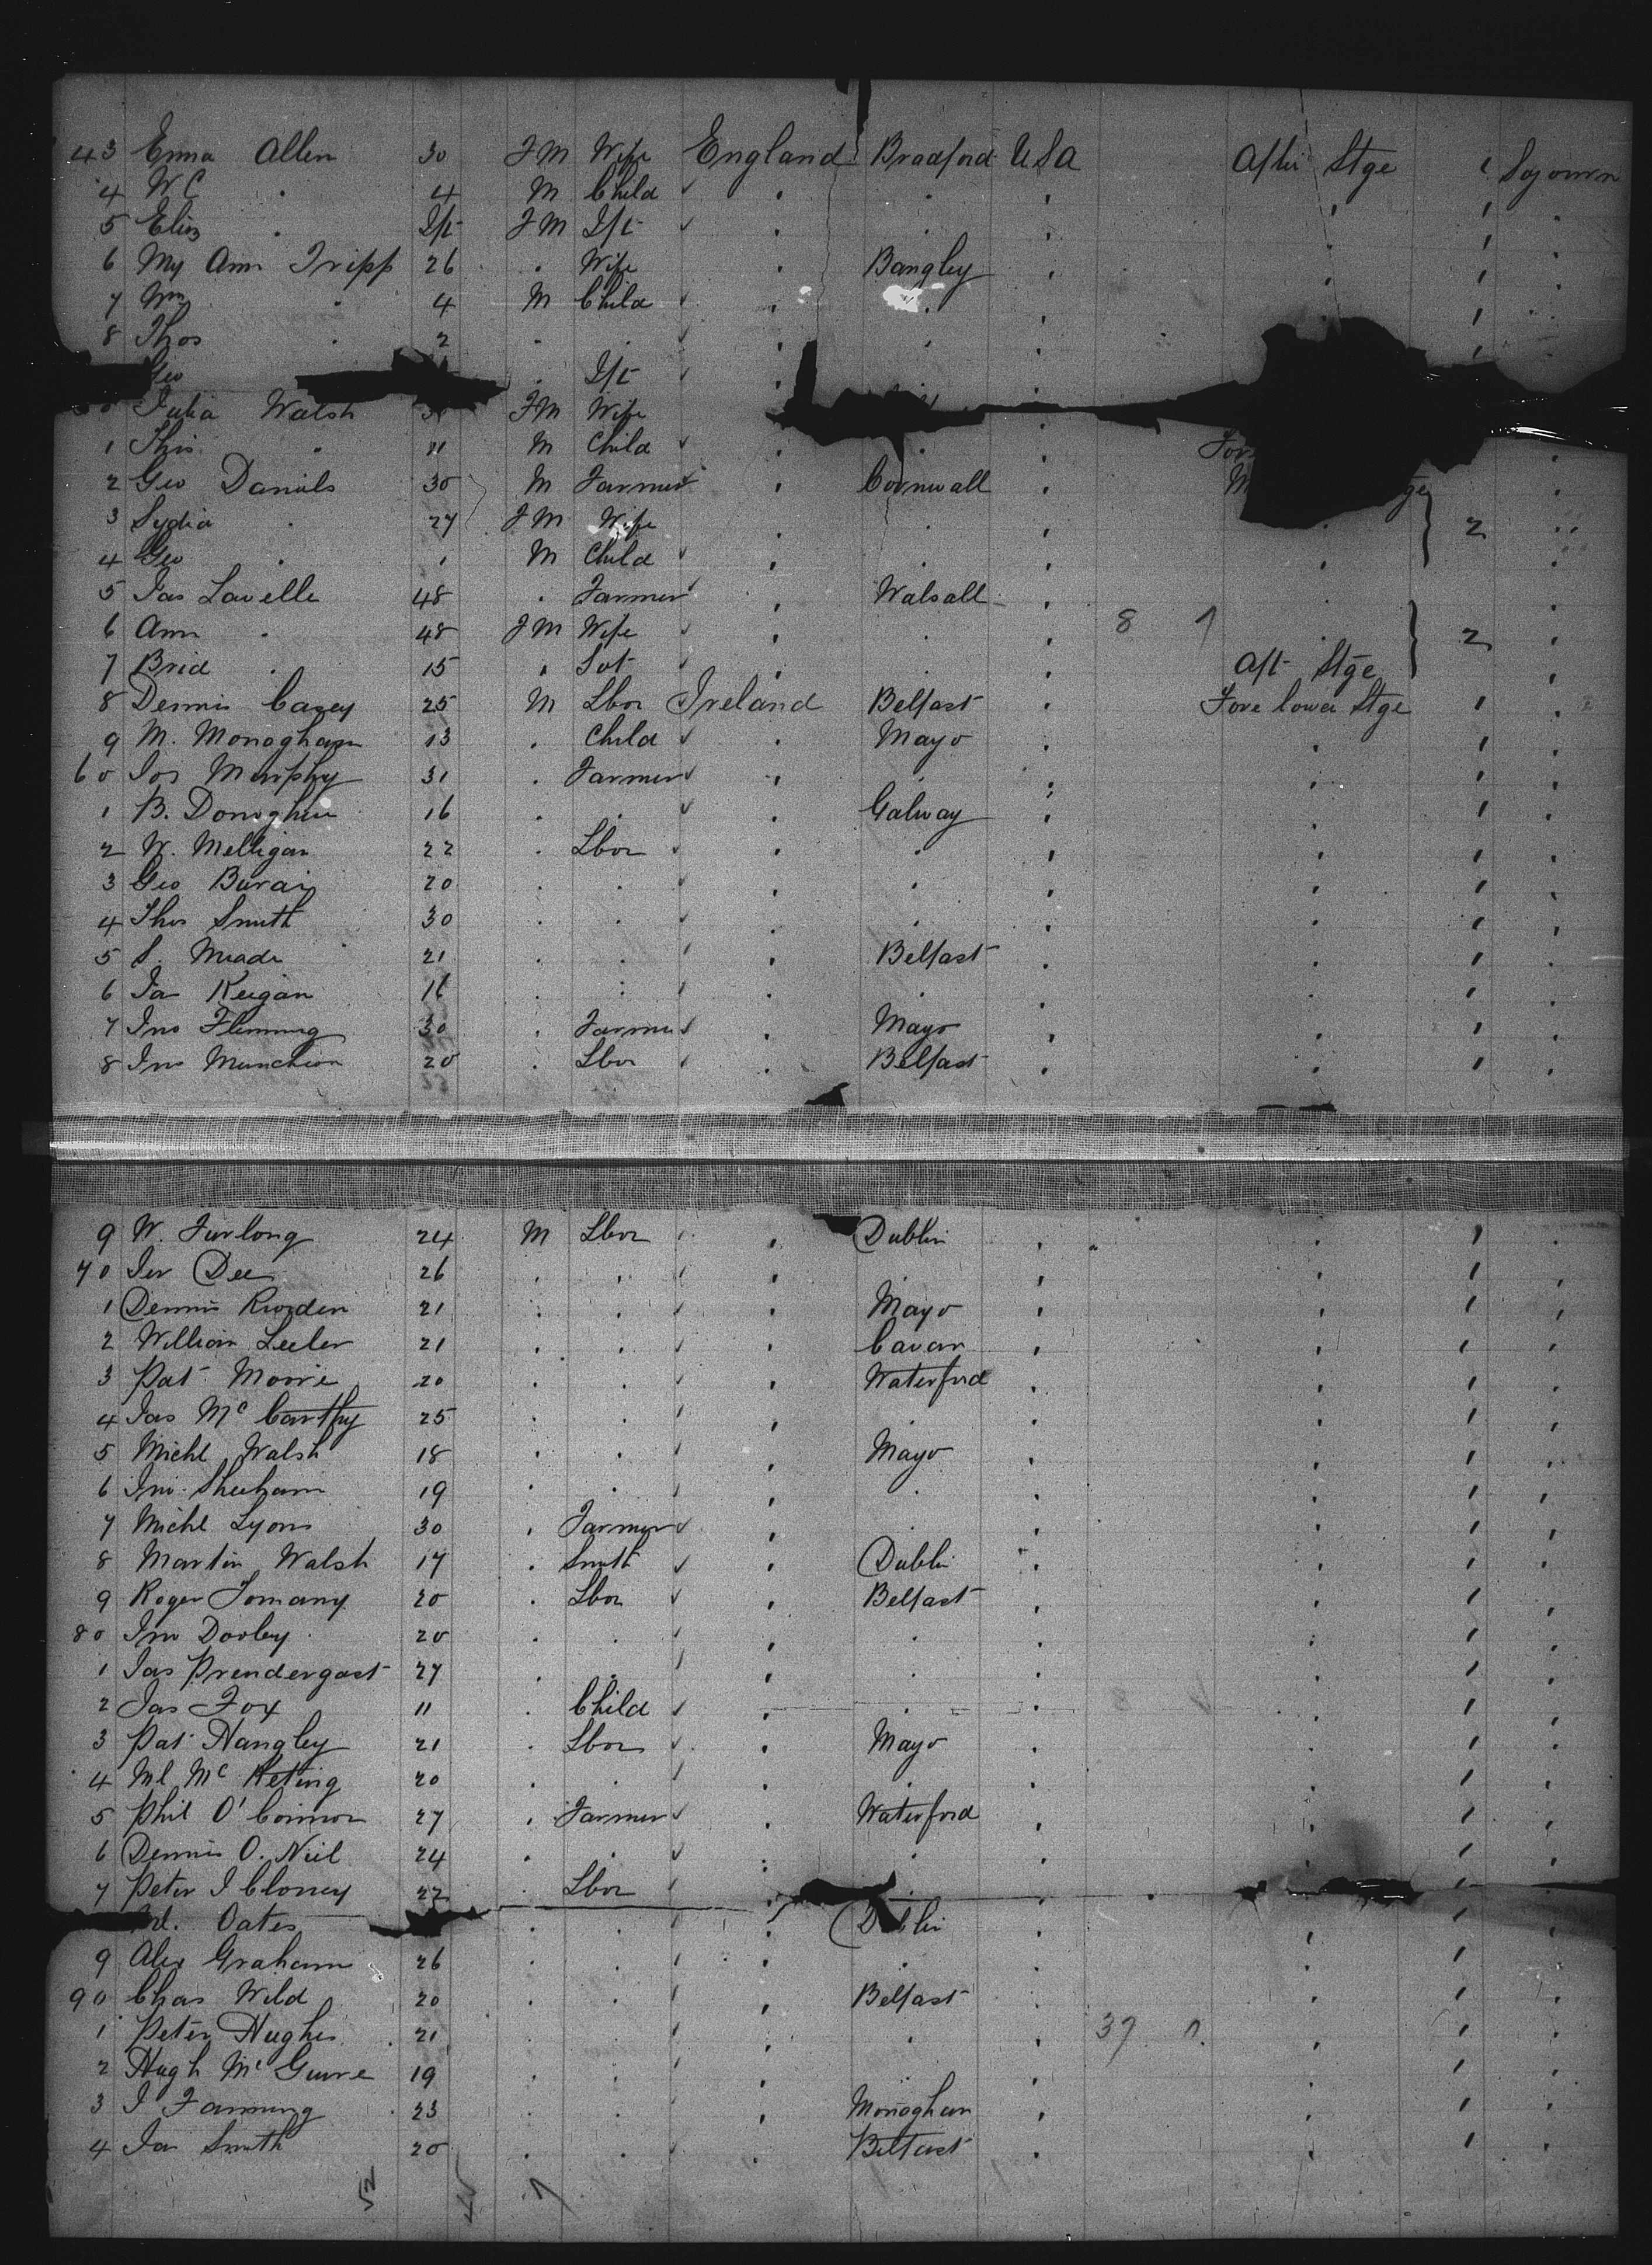 43 Emma Allen 30 F M Wife England Bradford USA After Stge 1 Sojourn
4 W C " 4 M Child
5 Eliz " Ift F M Ift
6 My Ann Tripp 26 " Wife " Bangley
7 Wm " 4 M Child
8 Thos " 2
Geo Ift
50 Julia Walsh F M Wife
1 Thos " 11 M Child
2 Geo Daniels 30 M Farmer " Cornwall
3 Lydia " 27 F M Wife 2
4 Geo " 1 M Child
5 Jas Lavelle 48 " Farmer " Walsall
6 Ann " 48 F M Wife 8 2
7 Brid " 15 " Aft Stge
8 Dennis Casey 25 M Lbor Ireland Belfast " Fore lower Stge 1
9 M. Monaghan 13 " Child " Mayo
60 Jos Murphy 31 " Farmer
1 B. Donoghue 16 Galway
2 W. Melligan 22 " Lbor
3 Geo 20
4 Thos Smith 30
5 S. Meade 21 Belfast
6 Ja Keigan 16
7 Jno Flemming 30 " Farmer " Mayo
8 Jno 20 " Lbor " Belfast
9 W. Furlong 24 M Lbor " Dublin
70 Jer Dee 26
1 Dennis Riorden 21 Mayo
2 William Leeler 21 Cavan
3 Pat Moore 20 Waterford
4 Jas McCarthy 25
5 Michl Walsh 18 Mayo
6 Jno Sheehan 19
7 Michl Lyons 30 " Farmer
8 Martin Walsh 17 " Smith " Dublin
9 Roger Tomany 20 " Lbor " Belfast
80 Jno Dooley 20
1 Jas Prendergast 27
2 Jas Fox 11 " Child
3 Pat Hangley 21 " Lbor " Mayo
4 Ml McKeting 20
5 Phil O'Connor 27 " Farmer " Waterford
6 Dennis O. Neil 24
7 Peter J Cloney 22 " Lbor
Ml. Oates Dublin
9 Alex Graham 26
90 Chas Wild 20 Belfast
1 Peter Hughes 21 37
2 Hugh McGuire 19
3 J Fanning 23 Monaghan
4 Jas Smith 20 Belfast